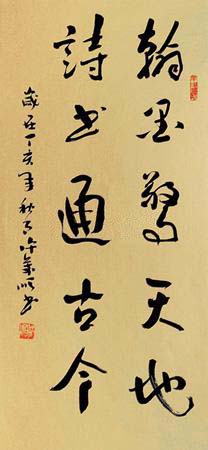 翰墨驚天地
詩书通古今
歲在丁亥年秋月许